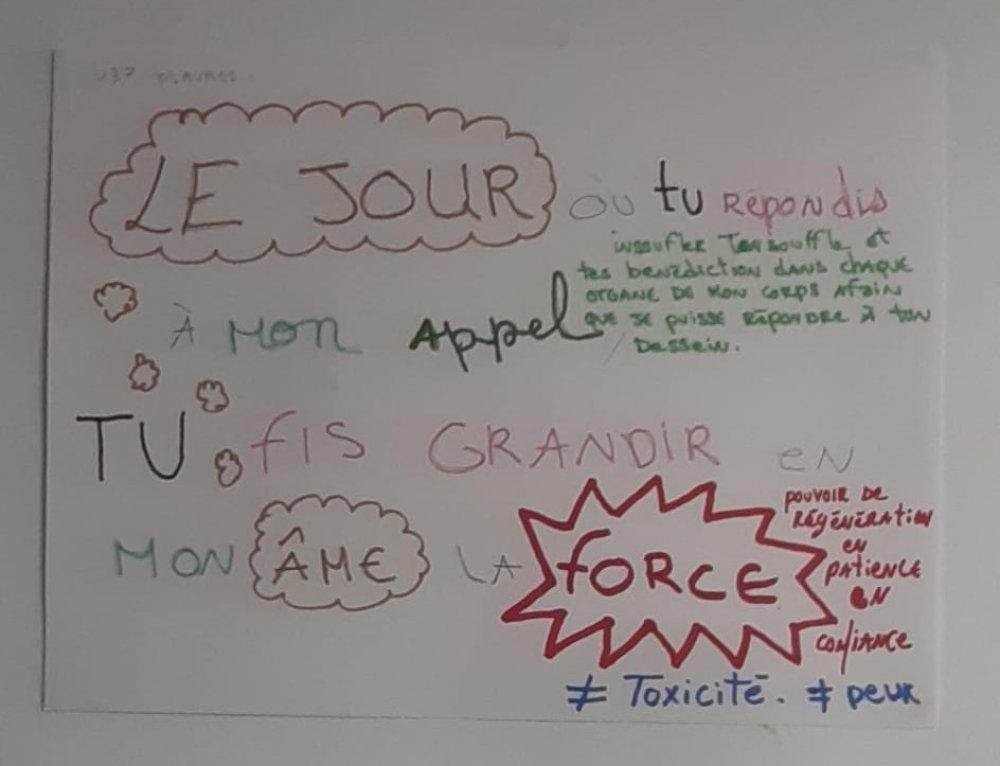 LE JOUR OÙ tu RÉPONDIS
insufler Ton souffle et
tes bénédiction dans chaque
organe de mon corps afain
que je puisse répondre à ton
Dessein.
À MON Appel
TU fis GRANDIR EN
MON ÂME LA FORCE
pouvoir de
Régénération
en
patience
en
confiance
≠ Toxicité. ≠ peur